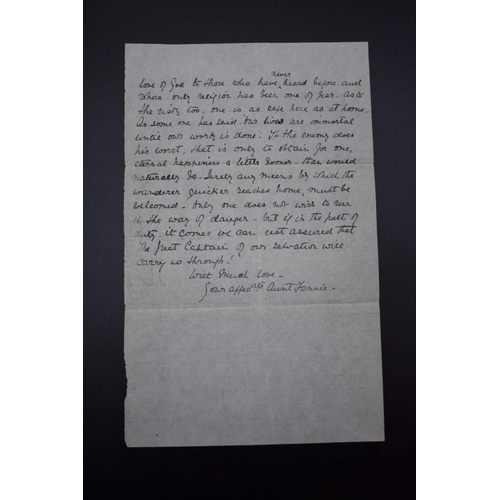 never
love of God to those who have heard before - and
whose only religion has been one of fear. As to
the risk too, one is as safe here as at home.
As some one has said. Our lives are immortal
until our work is done. If the enemy does
his worst, that is only to obtain for one,
eternal happiness a little sooner - than would
naturally do - Surely any means by which the
wanderer quicker reaches home, must be
welcomed - only one does not wish to run
in the way of danger - but if in the path of
duty, it comes we can rest assured that
The Great Captain of our salvation will
carry us through!
With Much Love -
Your affecate Aunt Fannie -